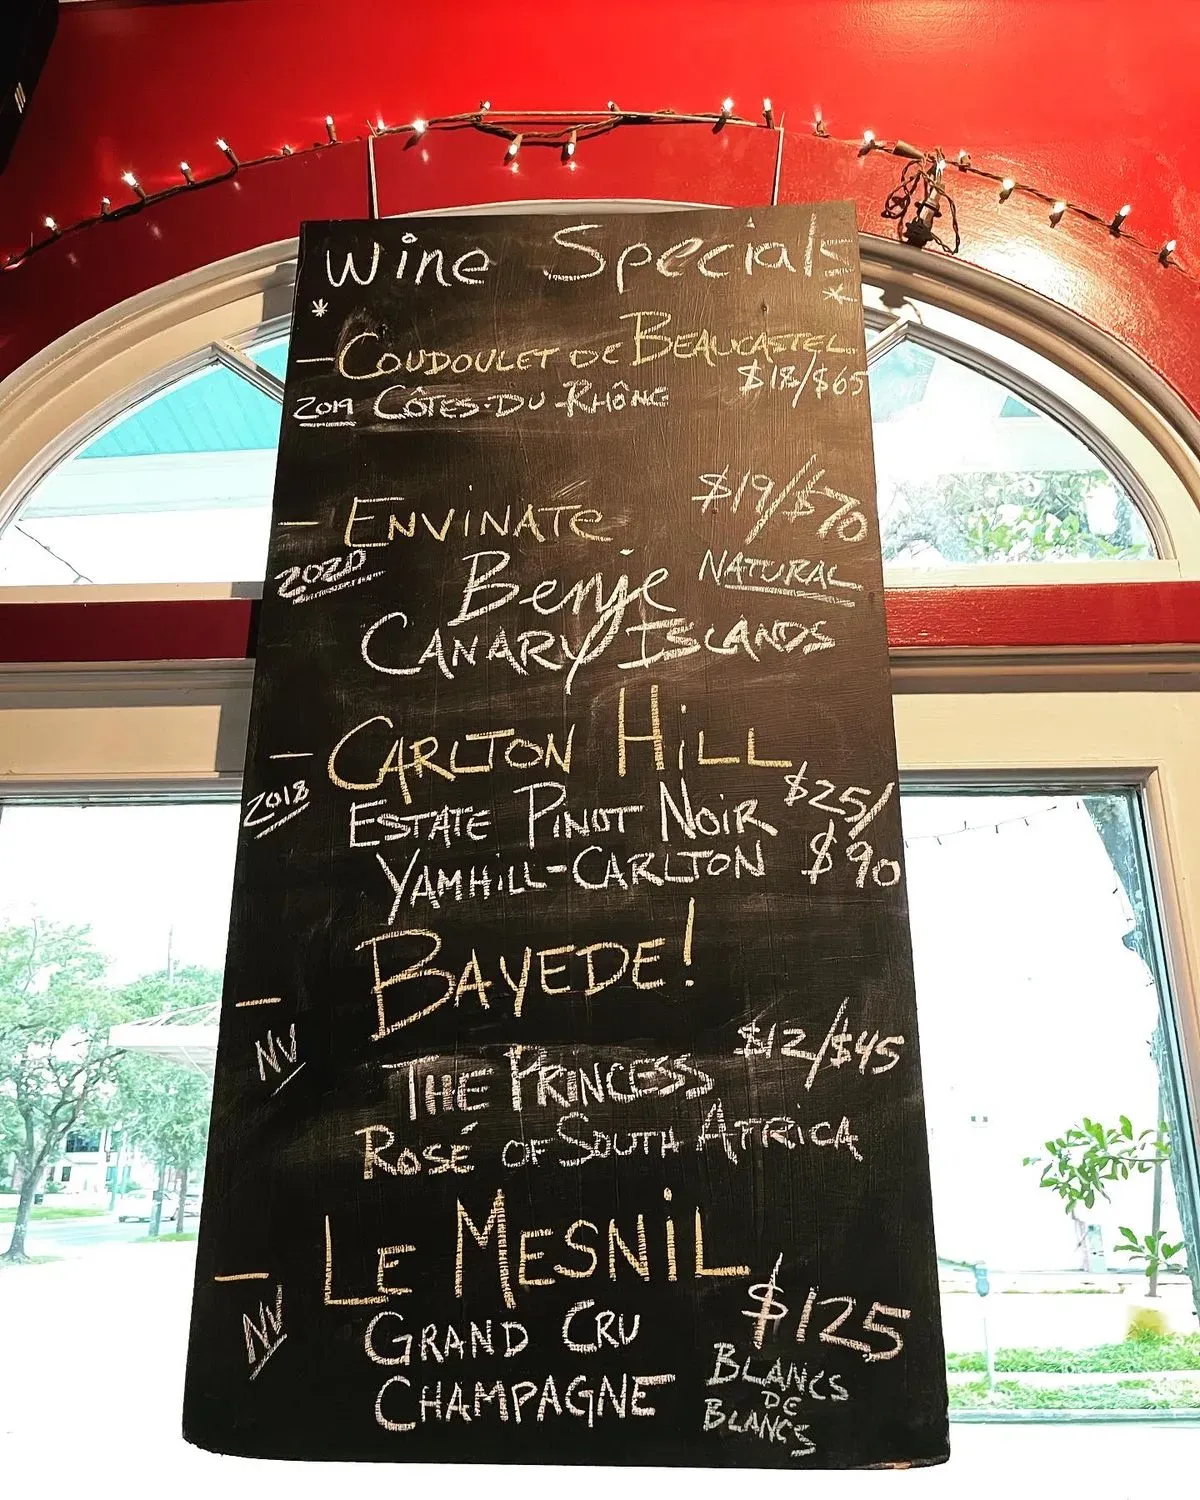 Wine Specials
* *
— COUDOULET DE BEAUCASTEL
$18/$65
2019 CÔTES-DU-RHÔNE
$19/$70
— ENVINATE
2020 Benje NATURAL
CANARY ISLANDS
— CARLTON HiLL
2018 ESTATE PINOT NOIR $25/
YAMHiLL-CARLTON $90
— BAYEDE!
NV $12/$45
THE PRINCESS
ROSÉ OF SOUTH AFRICA
— LE MESNiL
NV GRAND CRU $125
CHAMPAGNE BLANCS
DE
BLANCS